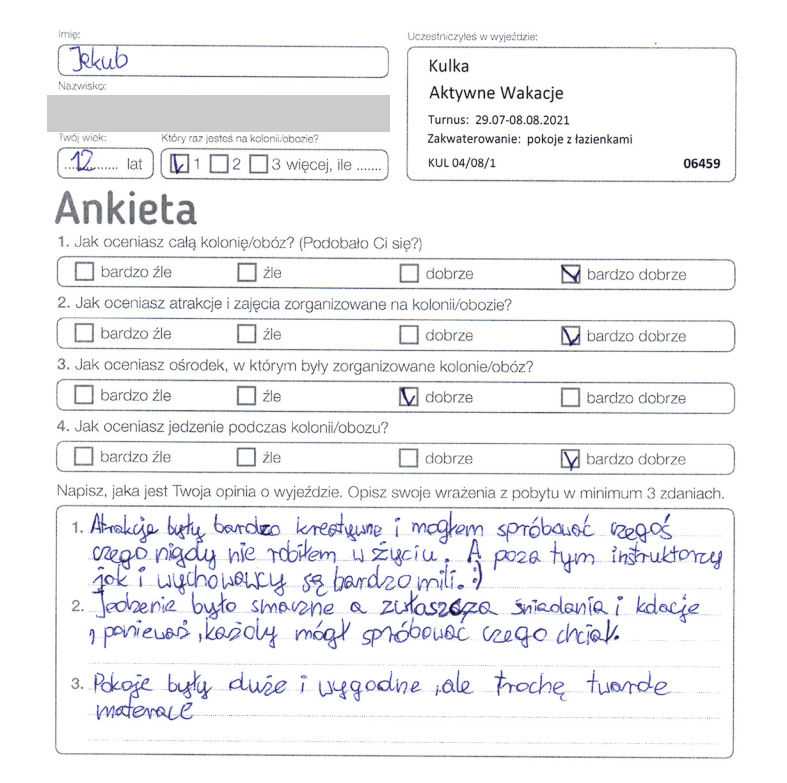 Imię:
Jakub
Nazwisko:
Twój wiek:
12 lat
Który raz jesteś na kolonii/obozie?
1 2 3 więcej, ile .......
Uczestniczyłeś w wyjeździe:
Kulka
Aktywne Wakacje
Turnus: 29.07-08.08.2021
Zakwaterowanie: pokoje z łazienkami
KUL 04/08/1 06459
Ankieta
1. Jak oceniasz całą kolonię/obóz? (Podobało Ci się?)
bardzo źle źle dobrze bardzo dobrze
2. Jak oceniasz atrakcje i zajęcia zorganizowane na kolonii/obozie?
bardzo źle źle dobrze bardzo dobrze
3. Jak oceniasz ośrodek, w którym były zorganizowane kolonie/obóz?
bardzo źle źle dobrze bardzo dobrze
4. Jak oceniasz jedzenie podczas kolonii/obozu?
bardzo źle źle dobrze bardzo dobrze
Napisz, jaka jest Twoja opinia o wyjeździe. Opisz swoje wrażenia z pobytu w minimum 3 zdaniach.
1. Atrakcje były bardzo kreatywne i mogłem spróbować czegoś
czego nigdy nie robiłem w życiu. A poza tym instruktorzy
jak i wychowawcy są bardzo mili. :)
2. Jedzenie było smaczne a zwłaszcza śniadania i kolacje
, ponieważ , każdy mógł spróbować czego chciał.
3. Pokoje były duże i wygodne ,ale trochę twarde
materace